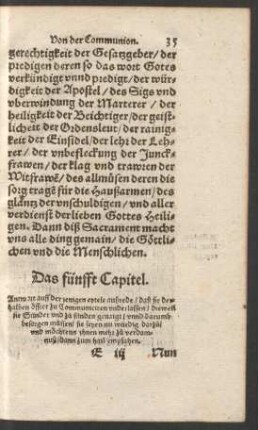 Von der Communion. 35
gerechtigkeit der Gesatzgeber / der
predigen deren so das wort Gotes
verkündigt vnnd predigt / der wür-
digkeit der Apostel / des Sigs vnd
vberwindung der Marterer / der
heiligkeit der Beichtiger / der geist-
licheit der Ordensleut / der rainig-
keit der Einsidel / der lehr der Leh-
rer / der vnbefleckung der Junck-
frawen / der klag vnd trawren der
Witfrawē / des allmůsen deren die
sorg tragē für die Hausarmen / des
glantz der vnschuldigen / vnd aller
verdienst der lieben Gottes Heili-
gen. Dann diß Sacrament macht
vns alle ding gemain / die Göttli-
chen vnd die Menschlichen.
Das fünfft Capitel.
Antwurt auff der jenigen eytele außrede / daß sie des-
halben öffter zu Communicirn vnderlassen / dieweil
sie Sünder vnd zu sünden genaigt / vnnd darumb
besorgen müssen / sie seyen vnwürdig darzů /
vnd möchtens ihnen mehr zu verdam-
nuß / dann zum hail empfahen.
E iij Nun